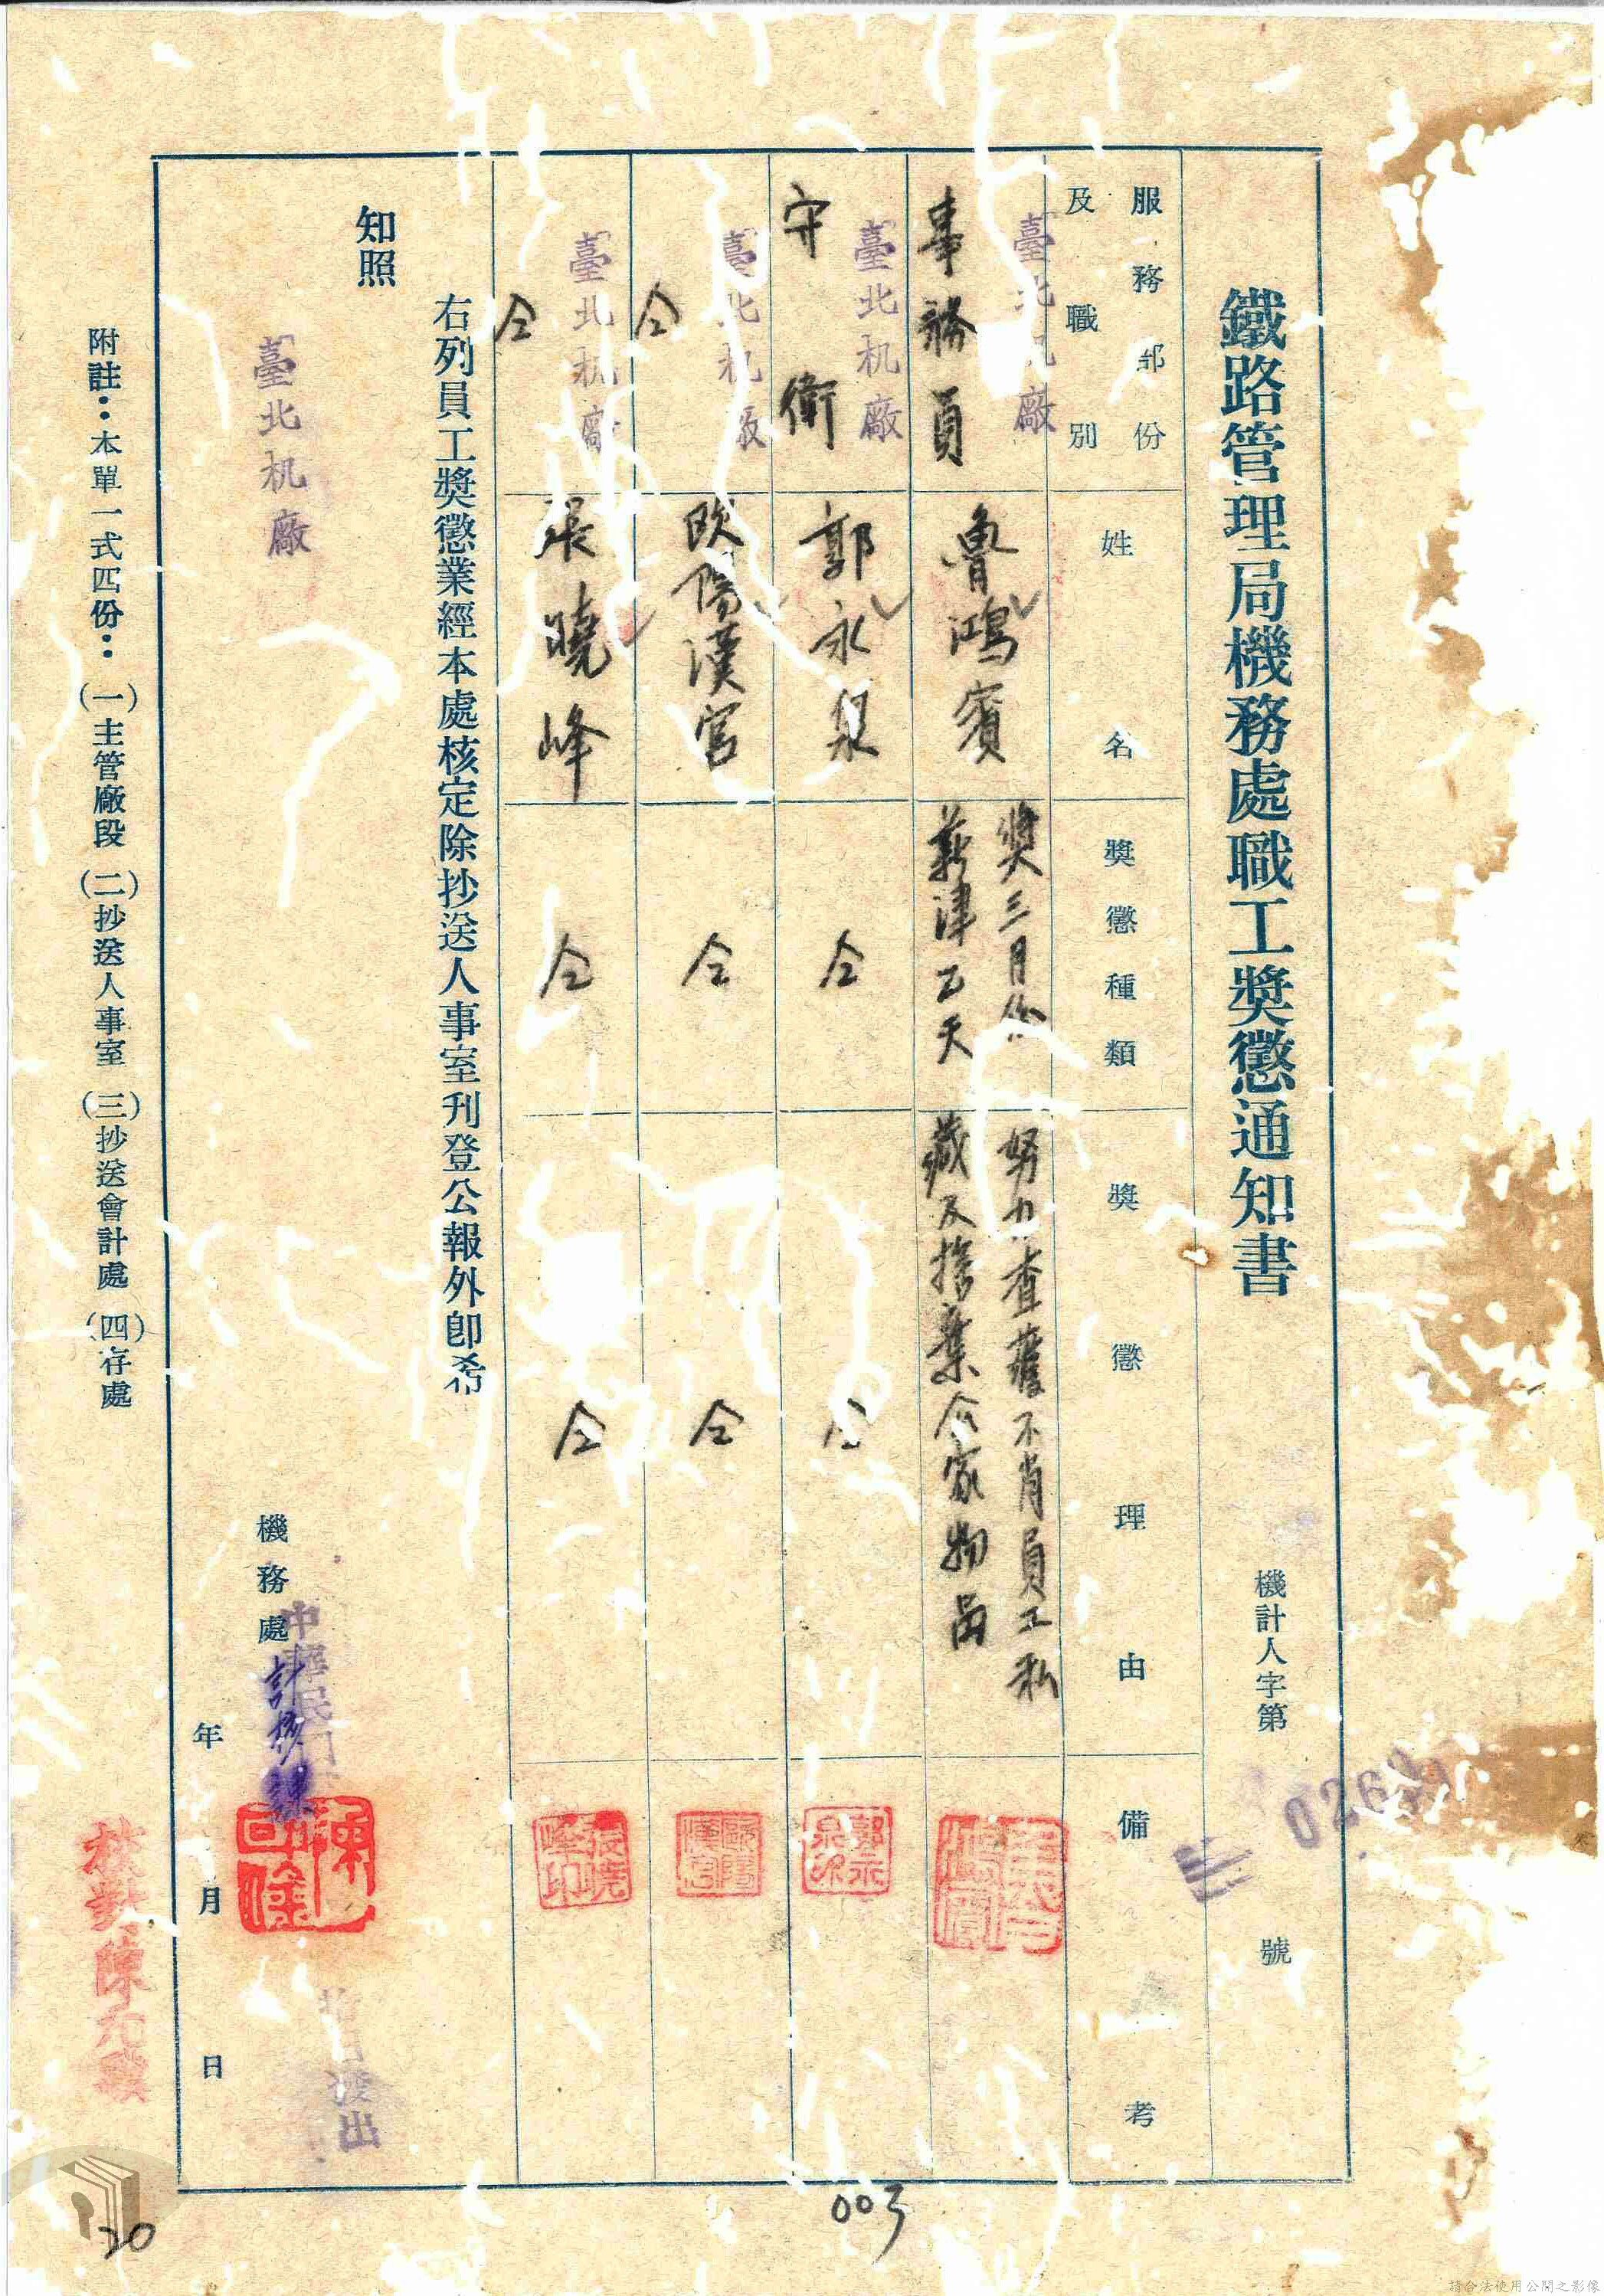 鐵路管理局機務處職工獎懲通知書
機計人字第
號
服務部份
及職別
姓名
獎懲種類
獎懲理由
備考
臺北机廠
事務員
魯鴻賓
獎三月份
薪津乙天
努力查獲不肖員工私
藏及捨棄公家物品
臺北机廠
守衛
郭永泉
仝
仝
郭永泉印
臺北机廠
仝
欧陽漢宮
仝
仝
臺北机廠
仝
張曉峰
仝
仝
張曉峰印
右列員工獎懲業經本處核定除抄送人事室刊登公報外卽希
知照
臺北机廠
機務處
中華民國
發出
年月日
附註：本單一式四份：(一)主管廠段(二)抄送人事室(三)抄送會計處(四)存處
校對陳
003
20
請合法使用公開之影像